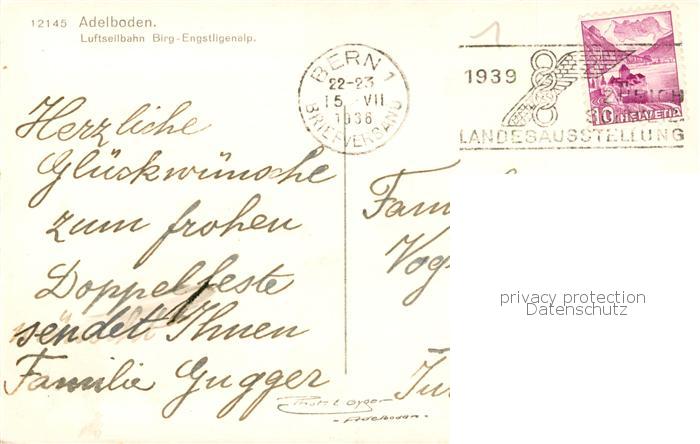 12145 Adelboden.
Luftseilbahn Birg-Engstligenalp.
BERN 1
22-23
15. VII
1938
BRIEFVERSAND
1
1939
ZÜRICH
LANDESAUSSTELLUNG
10 HELVETIA
Herzliche
Glückwünsche
zum frohen
Doppelfeste
sendet Ihnen
Familie Gugger
Fam
Vog
privacy protection
Datenschutz
- Adelboden -